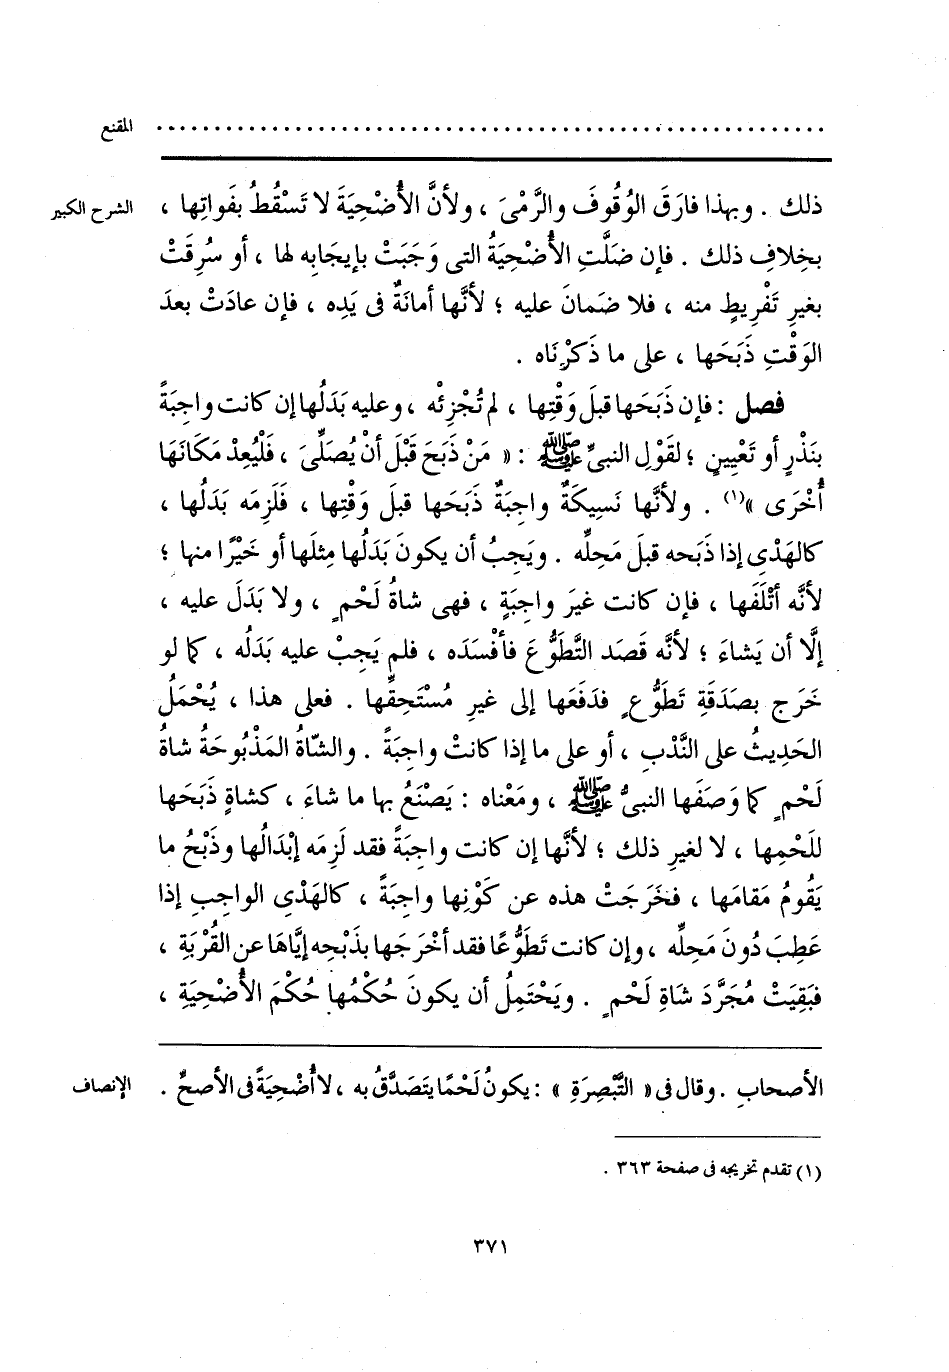 المقنع ........................................................
الشرح الكبير
ذلك . وبهذا فارَقَ الوُقُوفَ والرَّمْىَ ، ولأنَّ الأُضْحِيَةَ لا تَسْقُطُ بفَواتِها ،
بخِلافِ ذلك . فإن ضَلَّتِ الأُضْحِيَةُ التى وَجَبَتْ بإيجَابِه لها ، أو سُرِقَتْ
بغيرِ تَفْرِيطٍ منه ، فلا ضَمانَ عليه ؛ لأنَّها أمانَةٌ فى يَدِه ، فإن عادَتْ بعدَ
الوَقْتِ ذَبَحَها ، على ما ذَكَرْنَاه .
فصل : فإن ذَبَحَها قبلَ وَقْتِها ، لم تُجْزِئْه ، وعليه بَدَلُها إن كانت واجِبَةً
بنَذْرٍ أو تَعْيِينٍ ؛ لقَوْلِ النبىِّ ﷺ : « مَنْ ذَبَحَ قَبْلَ أنْ يُصَلِّىَ ، فَلْيُعِدْ مَكَانَهَا
أُخْرَى »(١) . ولأنَّها نَسِيكَةٌ واجِبَةٌ ذَبَحَها قبلَ وَقْتِها ، فَلَزِمَه بَدَلُها ،
كالهَدْىِ إذا ذَبَحه قبلَ مَحِلِّه . ويَجِبُ أن يكونَ بَدَلُها مِثلَها أو خَيْرًا منها ؛
لأنَّه أتْلَفَها ، فإن كانت غيرَ واجِبَةٍ ، فهى شاةُ لَحْمٍ ، ولا بَدَلَ عليه ،
إلَّا أن يَشاءَ ؛ لأنَّه قَصَد التَّطَوُّعَ فأفْسَدَه ، فلم يَجِبْ عليه بَدَلُه ، كما لو
خَرَج بصَدَقَةِ تَطَوُّعٍ فدَفَعَها إلى غيرِ مُسْتَحِقِّها . فعلى هذا ، يُحْمَلُ
الحَدِيثُ على النَّدْبِ ، أو على ما إذا كانتْ واجِبَةً . والشّاةُ المَذْبُوحَةُ شاةُ
لَحْمٍ كما وَصَفَها النبىُّ ﷺ ، ومَعْناه : يَصْنَعُ بها ما شاءَ ، كشاةٍ ذَبَحَها
للَحْمِها ، لا لغيرِ ذلك ؛ لأنَّها إن كانت واجِبَةً فقد لَزِمَه إبْدَالُها وذَبْحُ ما
يَقُومُ مَقامَها ، فخَرَجَتْ هذه عن كَوْنِها واجِبَةً ، كالهَدْىِ الواجِبِ إذا
عَطِبَ دُونَ مَحِلِّه ، وإن كانت تَطَوُّعًا فقد أخْرَجَها بذَبْحِه إيَّاهَا عن القُرْبَةِ ،
فبَقِيَتْ مُجَرَّدَ شَاةِ لَحْمٍ . ويَحْتَمِلُ أن يكونَ حُكْمُها حُكْمَ الأُضْحِيَةِ ،
الإنصاف
الأصحابِ . وقال فى « التَّبْصِرَةِ » : يكونُ لَحْمًا يتَصَدَّقُ به ، لا أُضْحِيَةً فى الأصحِّ .
(١) تقدم تخريجه فى صفحة ٣٦٣ .
٣٧١